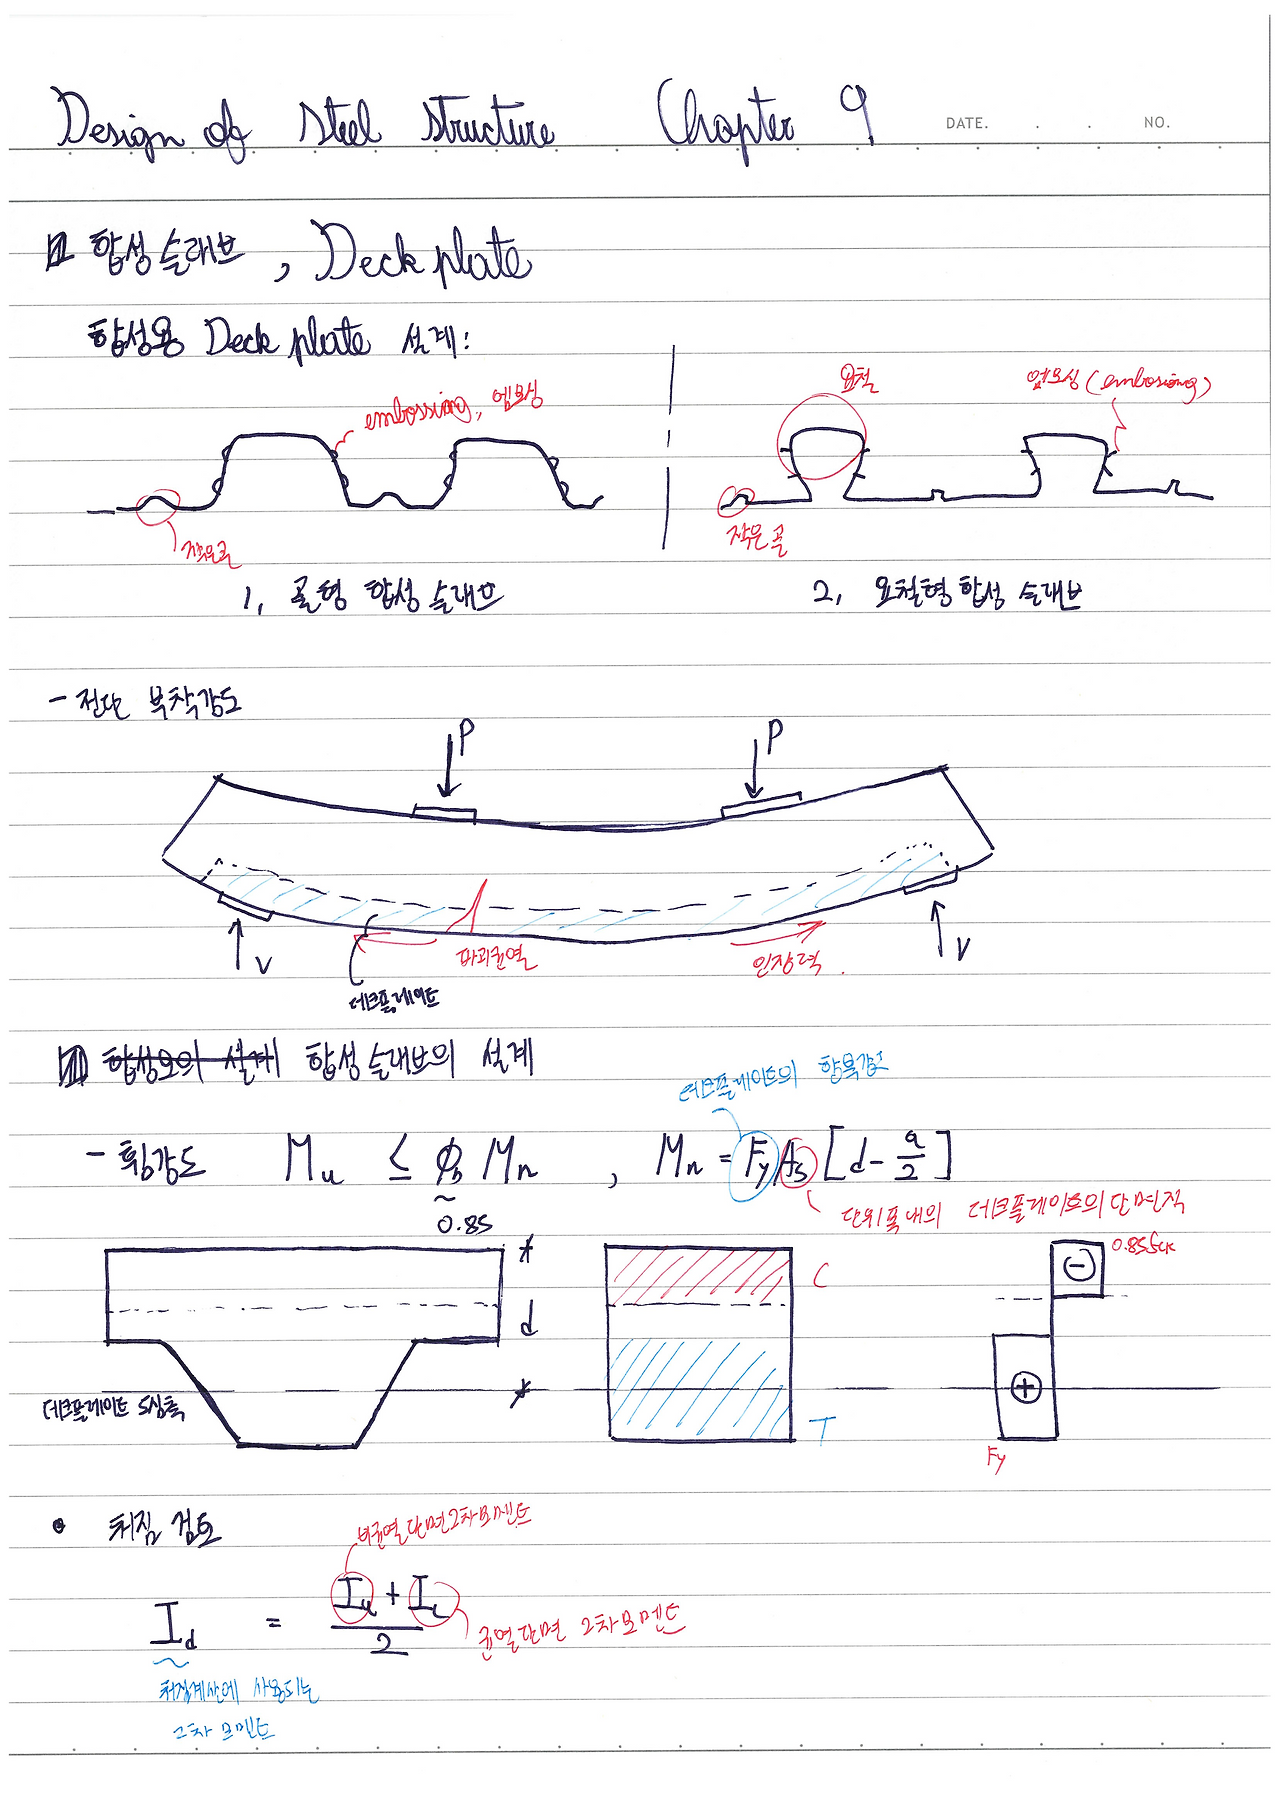 Design of steel structure Chapter 9
DATE. . . NO.
합성 슬래브, Deck plate
합성용 Deck plate 설계:
embossing, 엠보싱
작은골
1, 골형 합성 슬래브
요철
엠보싱 (embosing)
작은 골
2, 요철형 합성 슬래브
- 전단 부착강도
P
P
파괴균열
인장력.
V
V
데크플레이트
합성보의 설계 합성 슬래브의 설계
데크플레이트의 항복강도
- 휨강도 Mu ≤ ϕb Mn , Mn = Fy As [d - a/2]
0.85
단위폭 내의 데크플레이트의 단면적
d
데크플레이트 도심축
C
T
0.85fck
-
+
Fy
• 처짐 검토
비균열단면2차모멘트
Id = (Iu + Ic)/2
균열단면 2차모멘트
처짐계산에 사용되는
2차 모멘트